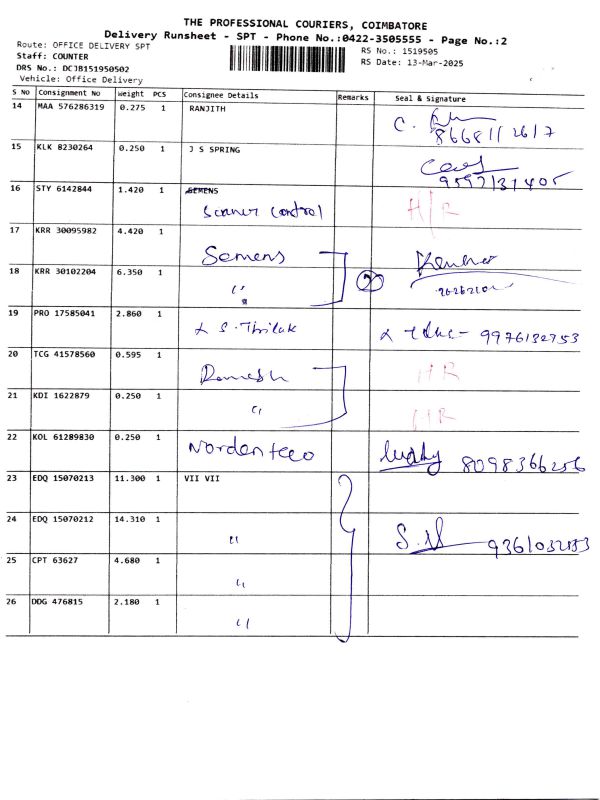 THE PROFESSIONAL COURIERS, COIMBATORE
Delivery Runsheet - SPT - Phone No.:0422-3505555 - Page No.:2
Route: OFFICE DELIVERY SPT
RS No.: 1519505
Staff: COUNTER
RS Date: 13-Mar-2025
DRS No.: DCJB151950502
Vehicle: Office Delivery
S No Consignment No Weight PCS Consignee Details Remarks Seal & Signature
14 MAA 576286319 0.275 1 RANJITH
8668112617
15 KLK 8230264 0.250 1 J S SPRING
9597131405
16 STY 6142844 1.420 1 control H/R
17 KRR 30095982 4.420 1 Semens
18 KRR 30102204 6.350 1 "
19 PRO 17585041 2.860 1 S. Thilak 9976132753
20 TCG 41578560 0.595 1 Ramesh HR
21 KDI 1622879 0.250 1 " HR
22 KOL 61289830 0.250 1 8098366256
23 EDQ 15070213 11.300 1 VII VII
24 EDQ 15070212 14.310 1 "
25 CPT 63627 4.680 1 "
26 DDG 476815 2.180 1 "